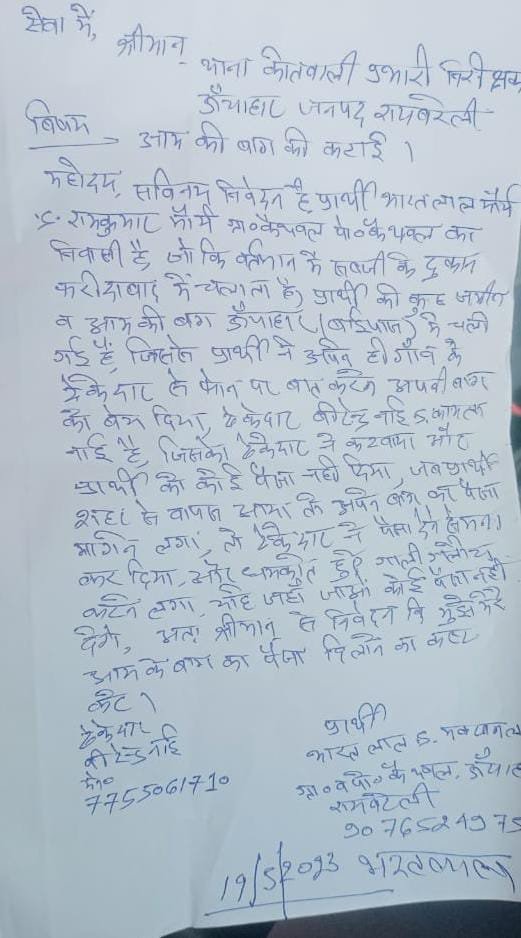 सेवा में,
श्रीमान्
थाना कोतवाली प्रभारी निरीक्षक
ऊँचाहार जनपद रायबरेली
विषय आम की बाग की कटाई ।
महोदय, सविनय निवेदन है, प्रार्थी भारत लाल मौर्य
S. रामकुमार मौर्य ग्रा० कैथवल पो० कैथवल का
निवासी है, जो कि वर्तमान में सब्जी के दुकान
फरीदाबाद में चलाता है, प्रार्थी की कुछ जमीन
व आम की बाग ऊँचाहार में चली
गई है, जिसमें प्रार्थी ने अपने ही गाँव के
ठेकेदार से फोन पर बात करके अपनी बाग
को बेच दिया, ठेकेदार बीरेन्द्र नाई S.
नाई है, जिसको ठेकेदार ने कटवाया और
प्रार्थी को कोई पैसा नहीं दिया, जब प्रार्थी
शहर से वापस आया तो अपने बाग का पैसा
मांगने लगा, तो ठेकेदार ने पैसा देने से मना
कर दिया, और धमकाते हुए गाली गलौज
करने लगा, चाहे जहाँ जाओ कोई पैसा नहीं
देंगे, अतः श्रीमान से निवेदन कि मुझे मेरे
आम के बाग का पैसा दिलाने का कष्ट
करें ।
ठेकेदार
बीरेन्द्र नाई
मो०
7755061710
प्रार्थी
भारत लाल S.
ग्रा० व पो० कैथवल, ऊँचाहार
रायबरेली
9076524975
19/5/2023 भारतलाल